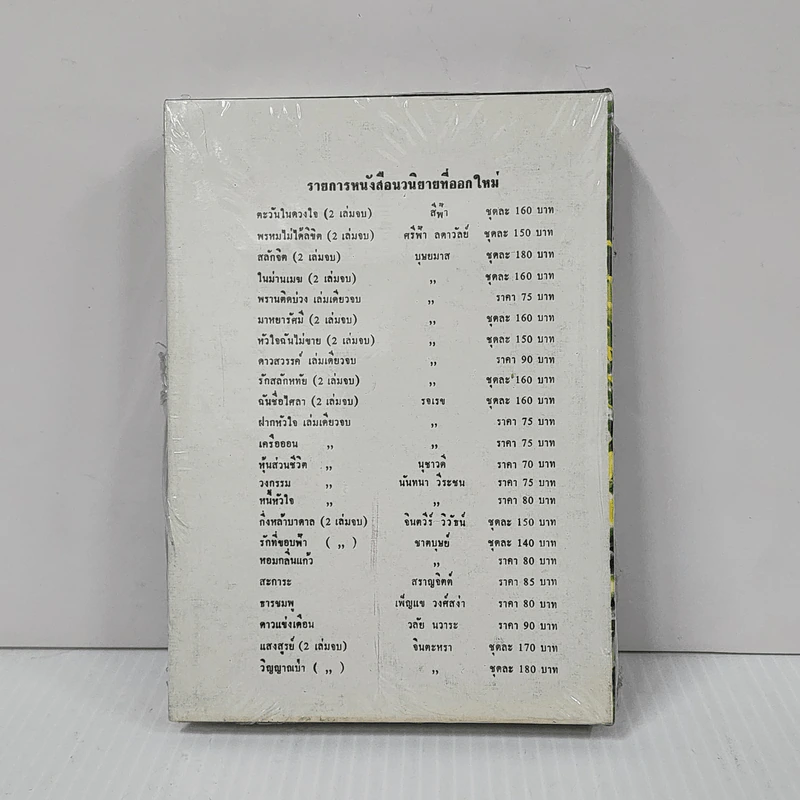 รายการหนังสือนวนิยายที่ออกใหม่
ตะวันในดวงใจ (2 เล่มจบ) สีฟ้า ชุดละ 160 บาท
พรหมไม่ได้ลิขิต (2 เล่มจบ) ศรีฟ้า ลดาวัลย์ ชุดละ 150 บาท
สลักจิต (2 เล่มจบ) บุษยมาส ชุดละ 180 บาท
ในม่านเมฆ (2 เล่มจบ) ,, ชุดละ 160 บาท
พรานติดบ่วง เล่มเดียวจบ ,, ราคา 75 บาท
มาหยารัศมี (2 เล่มจบ) ,, ชุดละ 160 บาท
หัวใจฉันไม่ขาย (2 เล่มจบ) ,, ชุดละ 150 บาท
ดาวสวรรค์ เล่มเดียวจบ ,, ราคา 90 บาท
รักสลักหทัย (2 เล่มจบ) ,, ชุดละ 160 บาท
ฉันชื่อใศลา (2 เล่มจบ) รจเรข ชุดละ 160 บาท
ฝากหัวใจ เล่มเดียวจบ ,, ราคา 75 บาท
เครือออน ,, ,, ราคา 75 บาท
หุ้นส่วนชีวิต ,, นุชาวดี ราคา 70 บาท
วงกรรม ,, นันทนา วีระชน ราคา 75 บาท
หนี้หัวใจ ,, ,, ราคา 80 บาท
กิ่งหล้าบาดาล (2 เล่มจบ) จินตวีร์ วิวัธน์ ชุดละ 150 บาท
รักที่ขอบฟ้า ( ,, ) ชาตบุษย์ ชุดละ 140 บาท
หอมกลิ่นแก้ว ,, ราคา 80 บาท
สะการะ สราญจิตต์ ราคา 85 บาท
ธารชมพู เพ็ญแข วงศ์สง่า ราคา 80 บาท
ดาวแข่งเดือน วลัย นวาระ ราคา 90 บาท
แสงสูรย์ (2 เล่มจบ) จินตะหรา ชุดละ 170 บาท
วิญญาณป่า ( ,, ) ,, ชุดละ 180 บาท